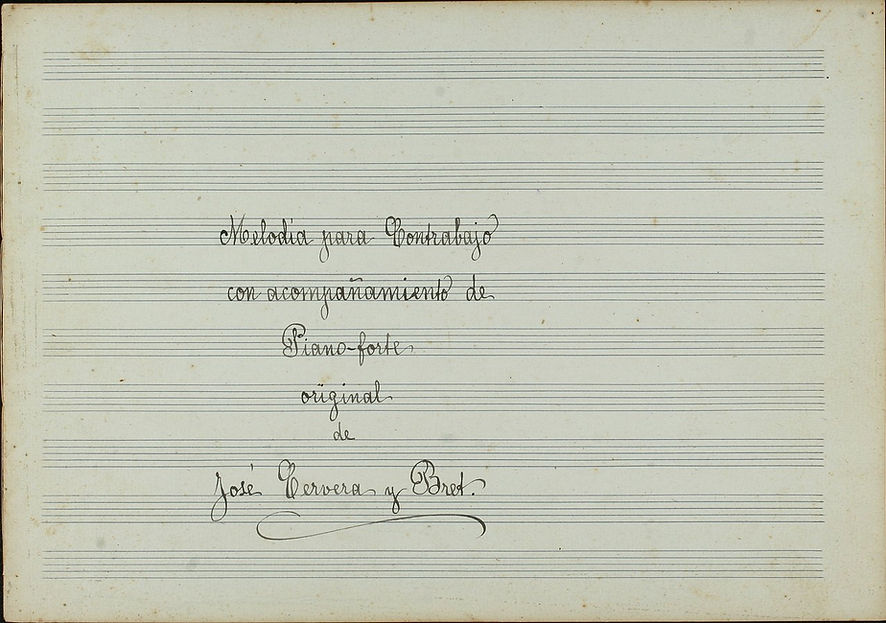 Melodia para Contrabajo
con acompañamiento de
Piano-forte
original
de
José Cervera y Bret.